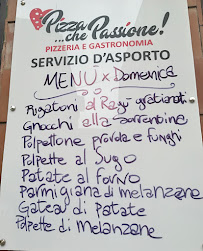 Pizza
...che Passione!
PIZZERIA E GASTRONOMIA
SERVIZIO D'ASPORTO
MENÙ x Domenica
Rigatoni al Ragù gratinati
Gnocchi alla sorrentina
Polpettone provola e funghi
Polpette al Sugo
Patate al forno
Parmigiana di melanzane
Gateau di Patate
Polpette di melanzane